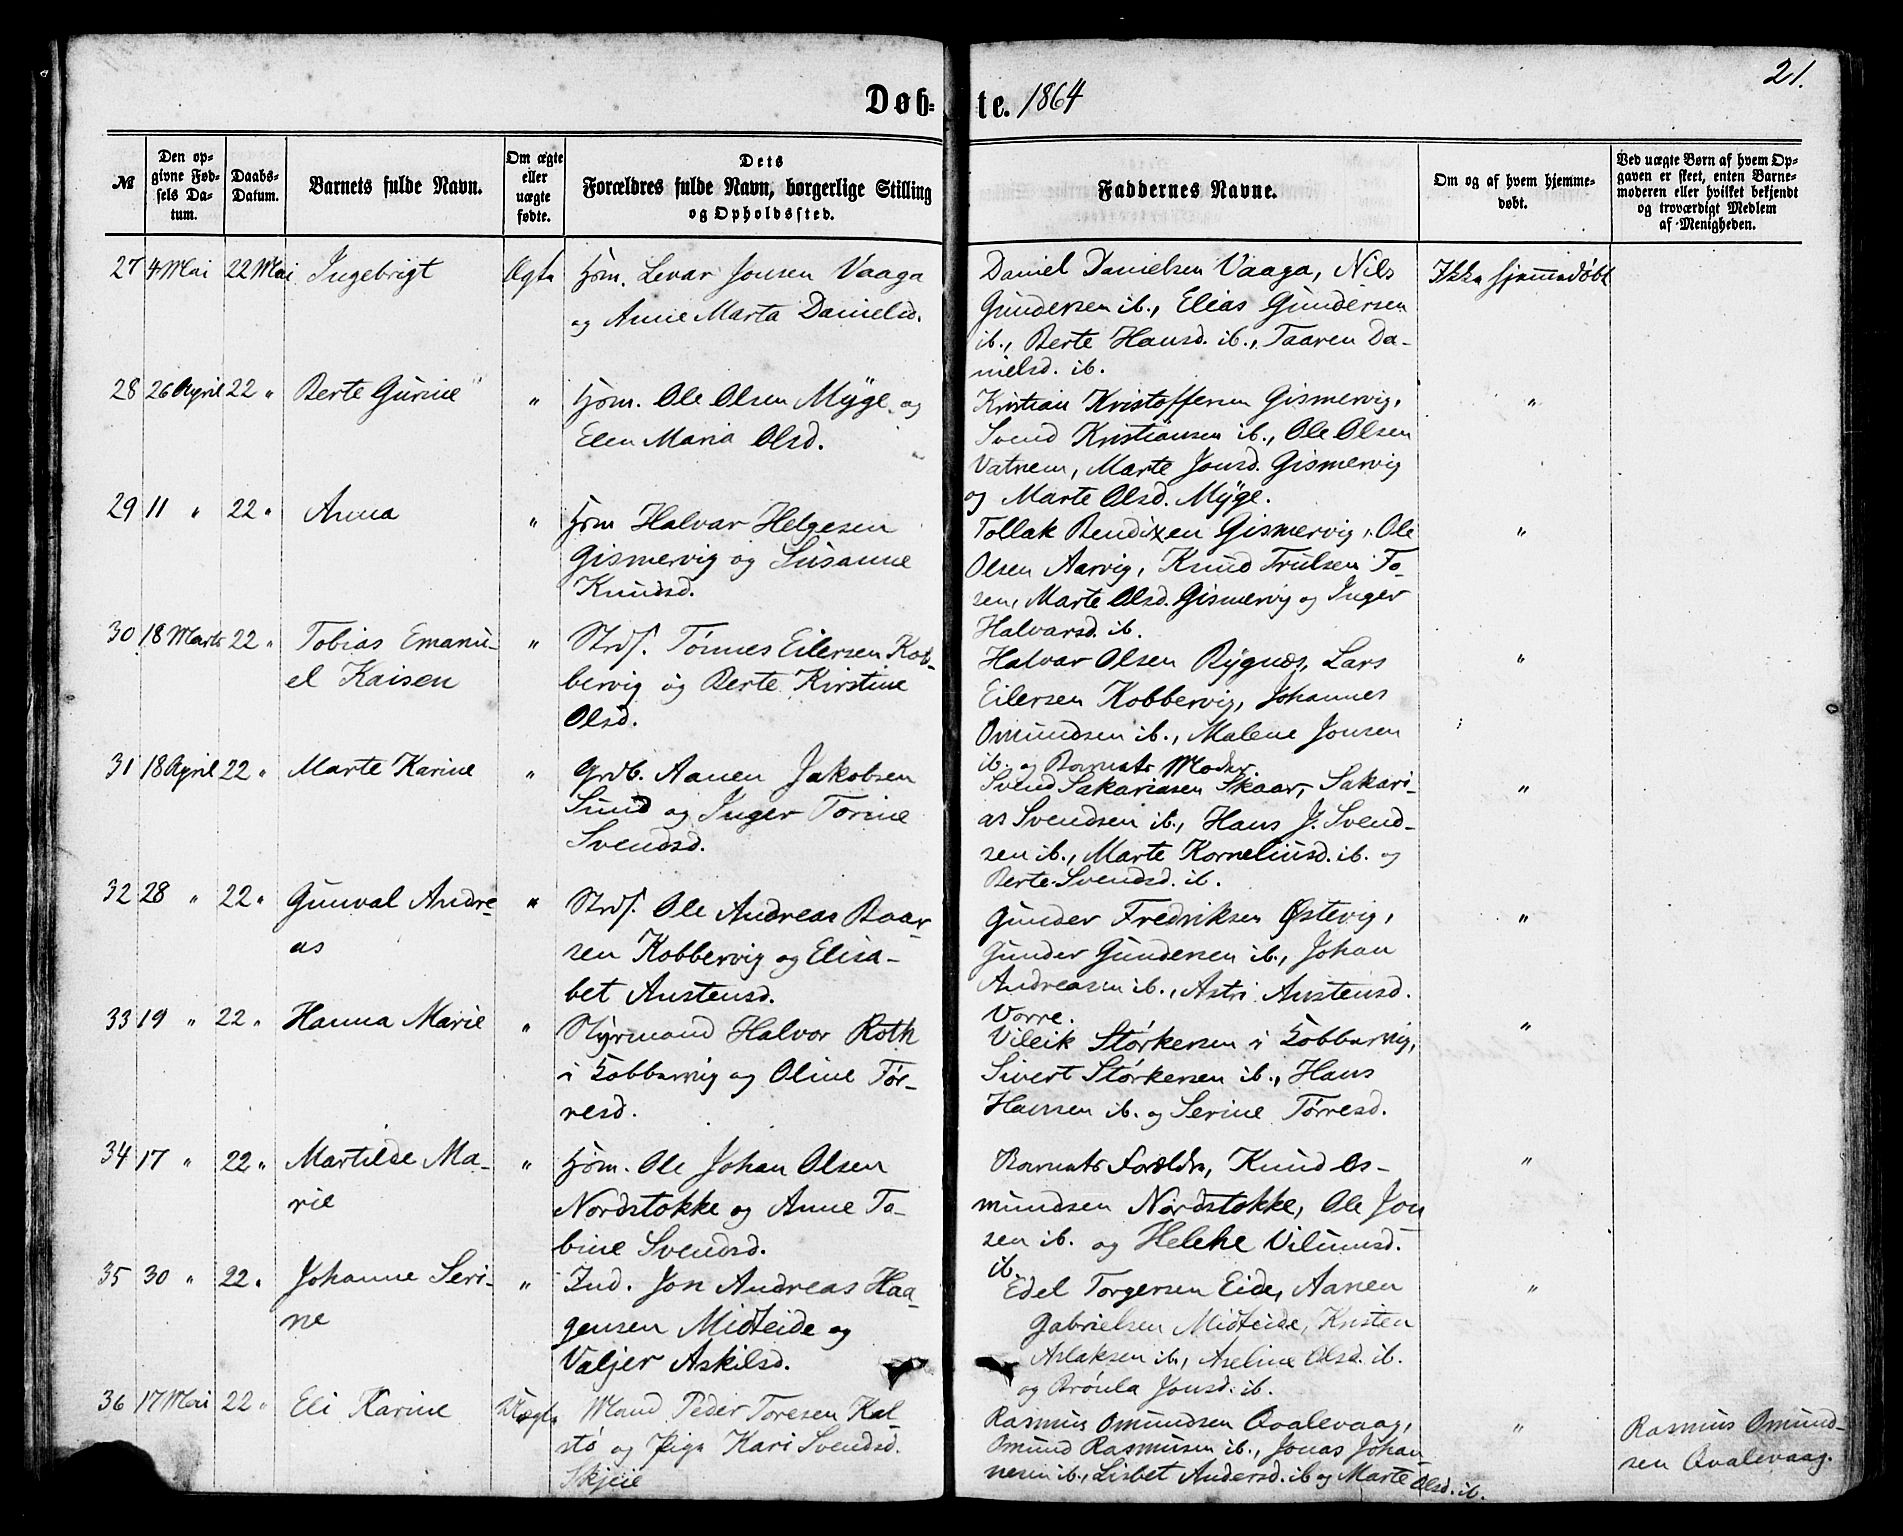 21.
Døb-te. 1864
№
Den op-
givne Fød-
sels Da-
tum.
Daabs-
Datum.
Barnets fulde Navn.
Om ægte
eller
uægte
fødte.
Dets
Forældres fulde Navn, borgerlige Stilling
og Opholdssted.
Faddernes Navne.
Om og af hvem hjemme-
døbt.
Ved uægte Børn af hvem Op-
gaven er skeet, enten Barne-
moderen eller hvilket bekjendt
og troværdigt Medlem
af Menigheden.
27 4 Mai 22 Mai Ingebrigt Ægte Hjem. Levar Jonsen Vaaga
og Anne Marta Danielsd.
Daniel Danielsen Vaaga, Nils
Gundersen ib., Elias Gundersen
ib., Berte Hansd. ib., Taaren Da-
nielsd. ib.
Ikke hjemmedøbt
28 26 April 22 " Berte Gurine " Hjem. Ole Olsen Myge og
Elen Maria Olsd.
Kristian Kristoffersen Gismervig,
Svend Kristiansen ib., Ole Olsen
Vatnem, Marte Jonsd. Gismervig
og Marte Olsd. Myge.
"
29 11 " 22 " Anna " Hjem Halvar Helgesen
Gismervig og Susanne
Knudsd.
Tollak Bendixen Gismervig, Ole
Olsen Aarvig, Knud Trulsen Fo-
sen, Marte Olsd. Gismervig og Inger
Halvarsd. ib.
"
30 18 Marts 22 " Tobias Emanu-
el Kaisen
" Strds. Tönnes Eilersen Kob-
bervig og Berte Kirstine
Olsd.
Halvar Olsen Bygnes, Lars
Eilersen Kobbervig, Johannes
Omundsen ib., Malene Jonsen
ib. og Barnets Moder
"
31 18 April 22 " Marte Karine " Grdb. Aanen Jakobsen
Sund og Inger Torine
Svendsd.
Svend Sakariasen Skaar, Sakari-
as Svendsen ib., Hans J. Svend-
sen ib., Marte Korneliusd. ib. og
Berte Svendsd. ib.
"
32 28 " 22 " Gunval Andre-
as
" Strds. Ole Andreas Baar-
sen Kobbervig og Elisa-
bet Austensd.
Gunder Fredriksen Østevig,
Gunder Gundersen ib., Johan
Andreasen ib., Astri Austensd.
Vorre.
"
33 19 " 22 " Hanna Marie " Styrmand Halvor Roth
i Kobbervig og Oline Tør-
resd.
Vileik Störkersen i Kobbervig,
Sivert Störkersen ib., Hans
Hansen ib. og Serine Törresd.
"
34 17 " 22 " Martilde Ma-
rie
" Hjem. Ole Johan Olsen
Nordstokke og Anne To-
bine Svendsd.
Barnets Forældre, Knud Os-
mundsen Nordstokke, Ole Jon
sen ib. og Helene Vilumsd.
ib.
"
35 30 " 22 " Johanne Seri-
ne
" Ind. Jon Andreas Haa-
gensen Midteide og
Valjer Askilsd.
Edel Torgersen Eide, Aanen
Gabrielsen Midteide, Kristen
Aslaksen ib., Aseline Olsd. ib.
og Brönla Jonsd. ib.
"
36 17 Mai 22 " Eli Karine Uægte Mand Peder Toresen Kal-
stö og Pige Kari Svendsd.
Skjeie
Rasmus Omundsen Qvalevaag,
Omund Rasmusen ib., Jonas Johan-
nesen ib., Lisbet Andersd. ib og Marte Olsd. ib.
"
Rasmus Omund-
sen Qvalevaag.